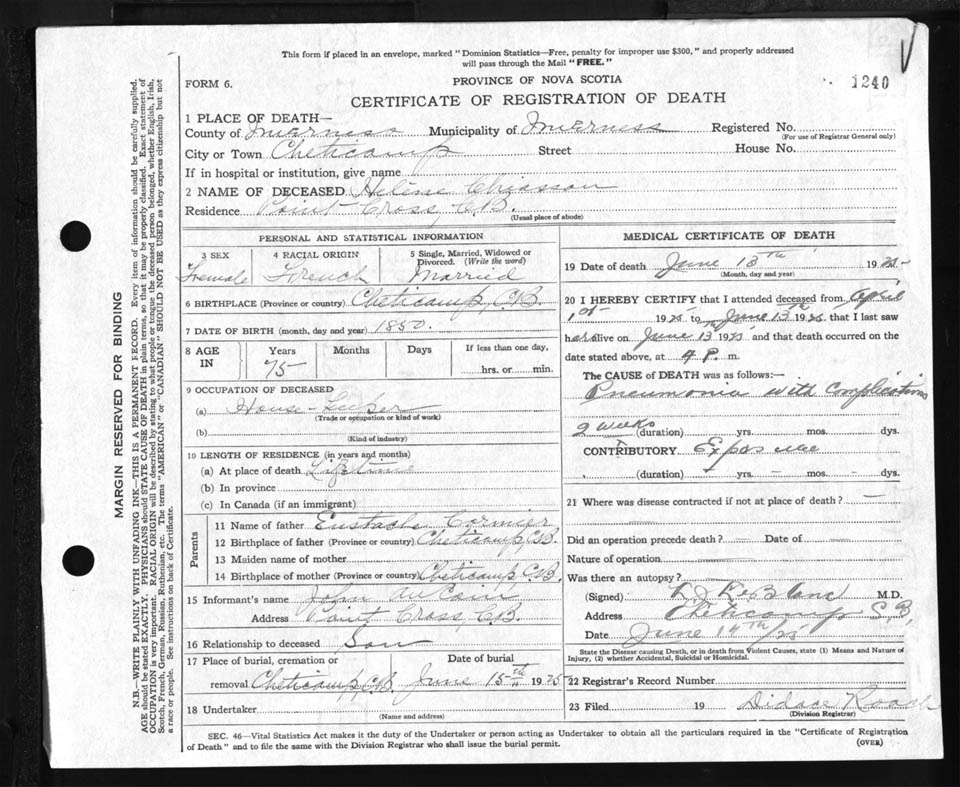 This form if placed in an envelope, marked "Dominion Statistics—Free, penalty for improper use $300," and properly addressed
will pass through the Mail "FREE."
FORM 6.
PROVINCE OF NOVA SCOTIA
1240
CERTIFICATE OF REGISTRATION OF DEATH
1 PLACE OF DEATH—
County of Inverness Municipality of Inverness Registered No.
(For use of Registrar General only)
City or Town Cheticamp Street House No.
If in hospital or institution, give name
2 NAME OF DECEASED Hélène Chiasson
Residence Point Cross, C.B.
(Usual place of abode)
PERSONAL AND STATISTICAL INFORMATION
3 SEX 4 RACIAL ORIGIN 5 Single, Married, Widowed or
Divorced. (Write the word)
Female French Married
6 BIRTHPLACE (Province or country) Cheticamp, C.B.
7 DATE OF BIRTH (month, day and year) 1850.
8 AGE IN Years Months Days If less than one day,
75 hrs. or min.
9 OCCUPATION OF DECEASED
(a) House-Keeper
(Trade or occupation or kind of work)
(b)
(Kind of industry)
10 LENGTH OF RESIDENCE (in years and months)
(a) At place of death Lifetime
(b) In province
(c) In Canada (if an immigrant)
Parents
11 Name of father Eustache Cormier
12 Birthplace of father (Province or country) Cheticamp, C.B.
13 Maiden name of mother
14 Birthplace of mother (Province or country) Cheticamp C.B.
15 Informant's name John
Address Point Cross, C.B.
16 Relationship to deceased Son
17 Place of burial, cremation or Date of burial
removal Cheticamp, C.B. June 15th 1925
18 Undertaker
(Name and address)
MEDICAL CERTIFICATE OF DEATH
19 Date of death June 13th 1925
(Month, day and year)
20 I HEREBY CERTIFY that I attended deceased from April
1925 to June 13th 1925 that I last saw
her alive on June 13th 1925 and that death occurred on the
date stated above, at 4 P. m.
The CAUSE OF DEATH was as follows:—
Pneumonia with complications
2 weeks (duration) yrs. mos. dys.
CONTRIBUTORY Exposure
(duration) yrs. mos. dys.
21 Where was disease contracted if not at place of death? —
Did an operation precede death? — Date of
Nature of operation
Was there an autopsy?
(Signed) LeBlanc M.D.
Address Cheticamp C.B.
Date June 14th/25
State the Disease causing Death, or in death from Violent Causes, state (1) Means and Nature of
Injury, (2) whether Accidental, Suicidal or Homicidal.
22 Registrar's Record Number
23 Filed 19 Didace Roach
(Division Registrar)
SEC. 46—Vital Statistics Act makes it the duty of the Undertaker or person acting as Undertaker to obtain all the particulars required in the "Certificate of Registration
of Death" and to file the same with the Division Registrar who shall issue the burial permit.
(OVER)
MARGIN RESERVED FOR BINDING
N.B.—WRITE PLAINLY WITH UNFADING INK—THIS IS A PERMANENT RECORD. Every item of information should be carefully supplied.
AGE should be stated EXACTLY. PHYSICIANS should STATE CAUSE OF DEATH in plain terms, so that it may be properly classified. Exact statement of
OCCUPATION is very important. RACIAL ORIGIN will be described by stating to what people or tongue the deceased person belonged, whether English, Irish,
Scotch, French, German, Russian, Ruthenian, etc. The terms "AMERICAN" or "CANADIAN" SHOULD NOT BE USED as they express citizenship but not
a race or people. See instructions on back of Certificate.